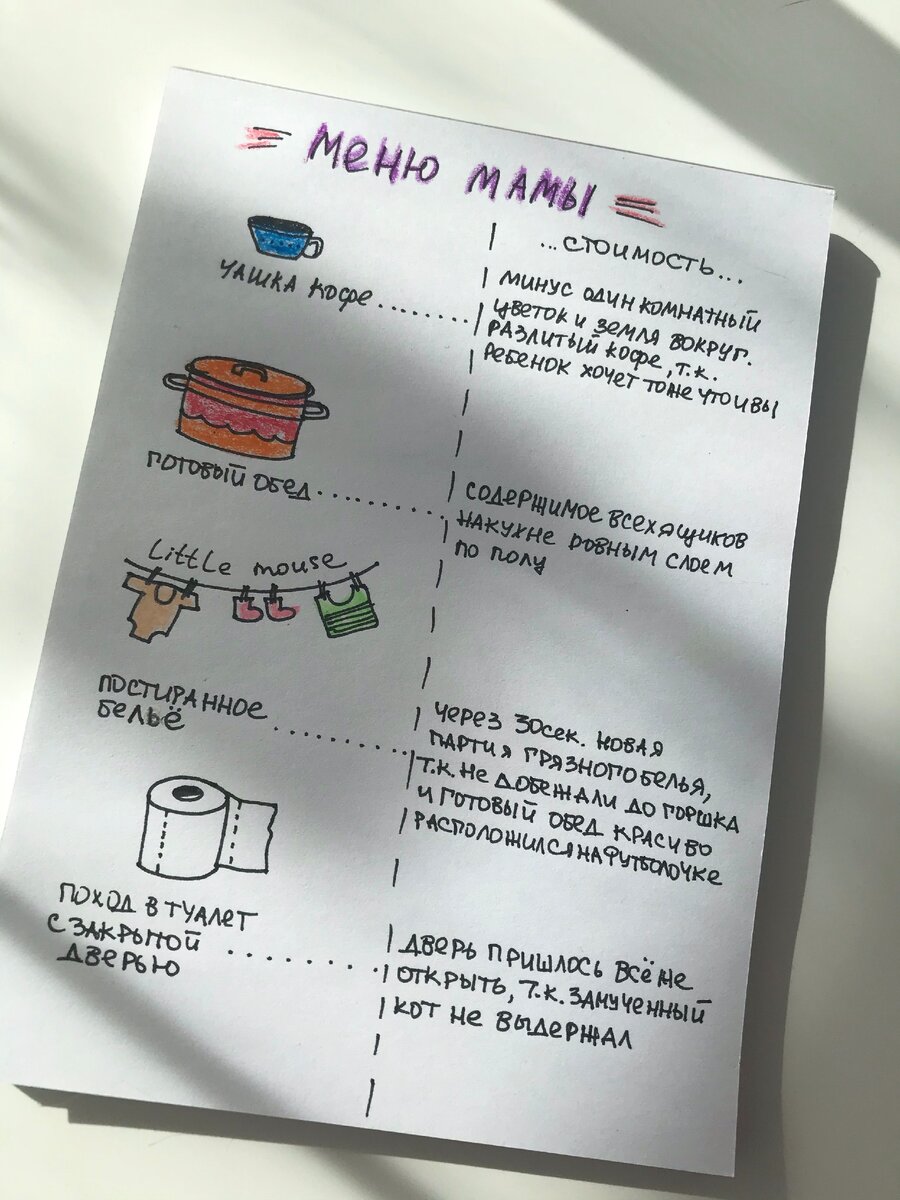 = МЕНЮ МАМЫ =
...СТОИМОСТЬ...
ЧАШКА КОФЕ.........
МИНУС ОДИН КОМНАТНЫЙ
ЦВЕТОК И ЗЕМЛЯ ВОКРУГ.
РАЗЛИТЫЙ КОФЕ, Т.К.
РЕБЕНОК ХОЧЕТ ТОЖЕ ЧТО И ВЫ
ГОТОВЫЙ ОБЕД...........
СОДЕРЖИМОЕ ВСЕХ ЯЩИКОВ
НА КУХНЕ РОВНЫМ СЛОЕМ
ПО ПОЛУ
Little mouse
ПОСТИРАННОЕ
БЕЛЬЁ ...........
ЧЕРЕЗ 30СЕК. НОВАЯ
ПАРТИЯ ГРЯЗНОГО БЕЛЬЯ,
Т.К. НЕ ДОБЕЖАЛИ ДО ГОРШКА
И ГОТОВЫЙ ОБЕД КРАСИВО
РАСПОЛОЖИЛСЯ НА ФУТБОЛОЧКЕ
ПОХОД В ТУАЛЕТ
С ЗАКРЫТОЙ ..........
ДВЕРЬЮ
ДВЕРЬ ПРИШЛОСЬ ВСЁ ЖЕ
ОТКРЫТЬ, Т.К. ЗАМУЧЕННЫЙ
КОТ НЕ ВЫДЕРЖАЛ